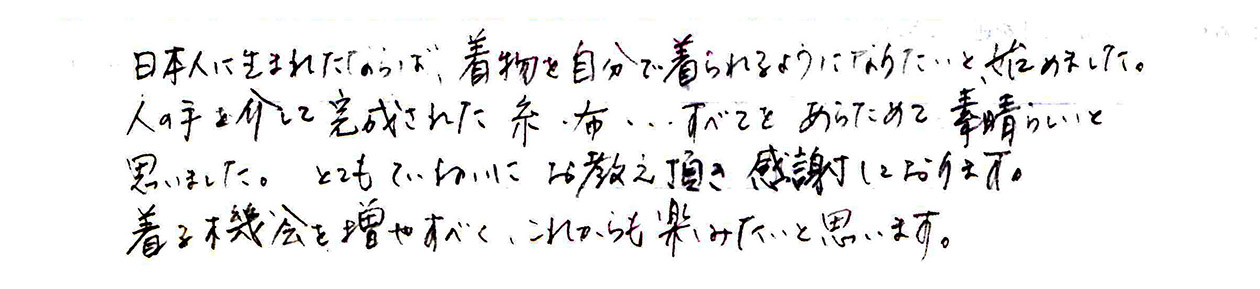 日本人に生まれたならば、着物を自分で着られるようになりたいと、始めました。
人の手を介して完成された糸・布・・・すべてをあらためて素晴らしいと
思いました。とてもていねいにお教え頂き感謝しております。
着る機会を増やすべく、これからも楽しみたいと思います。